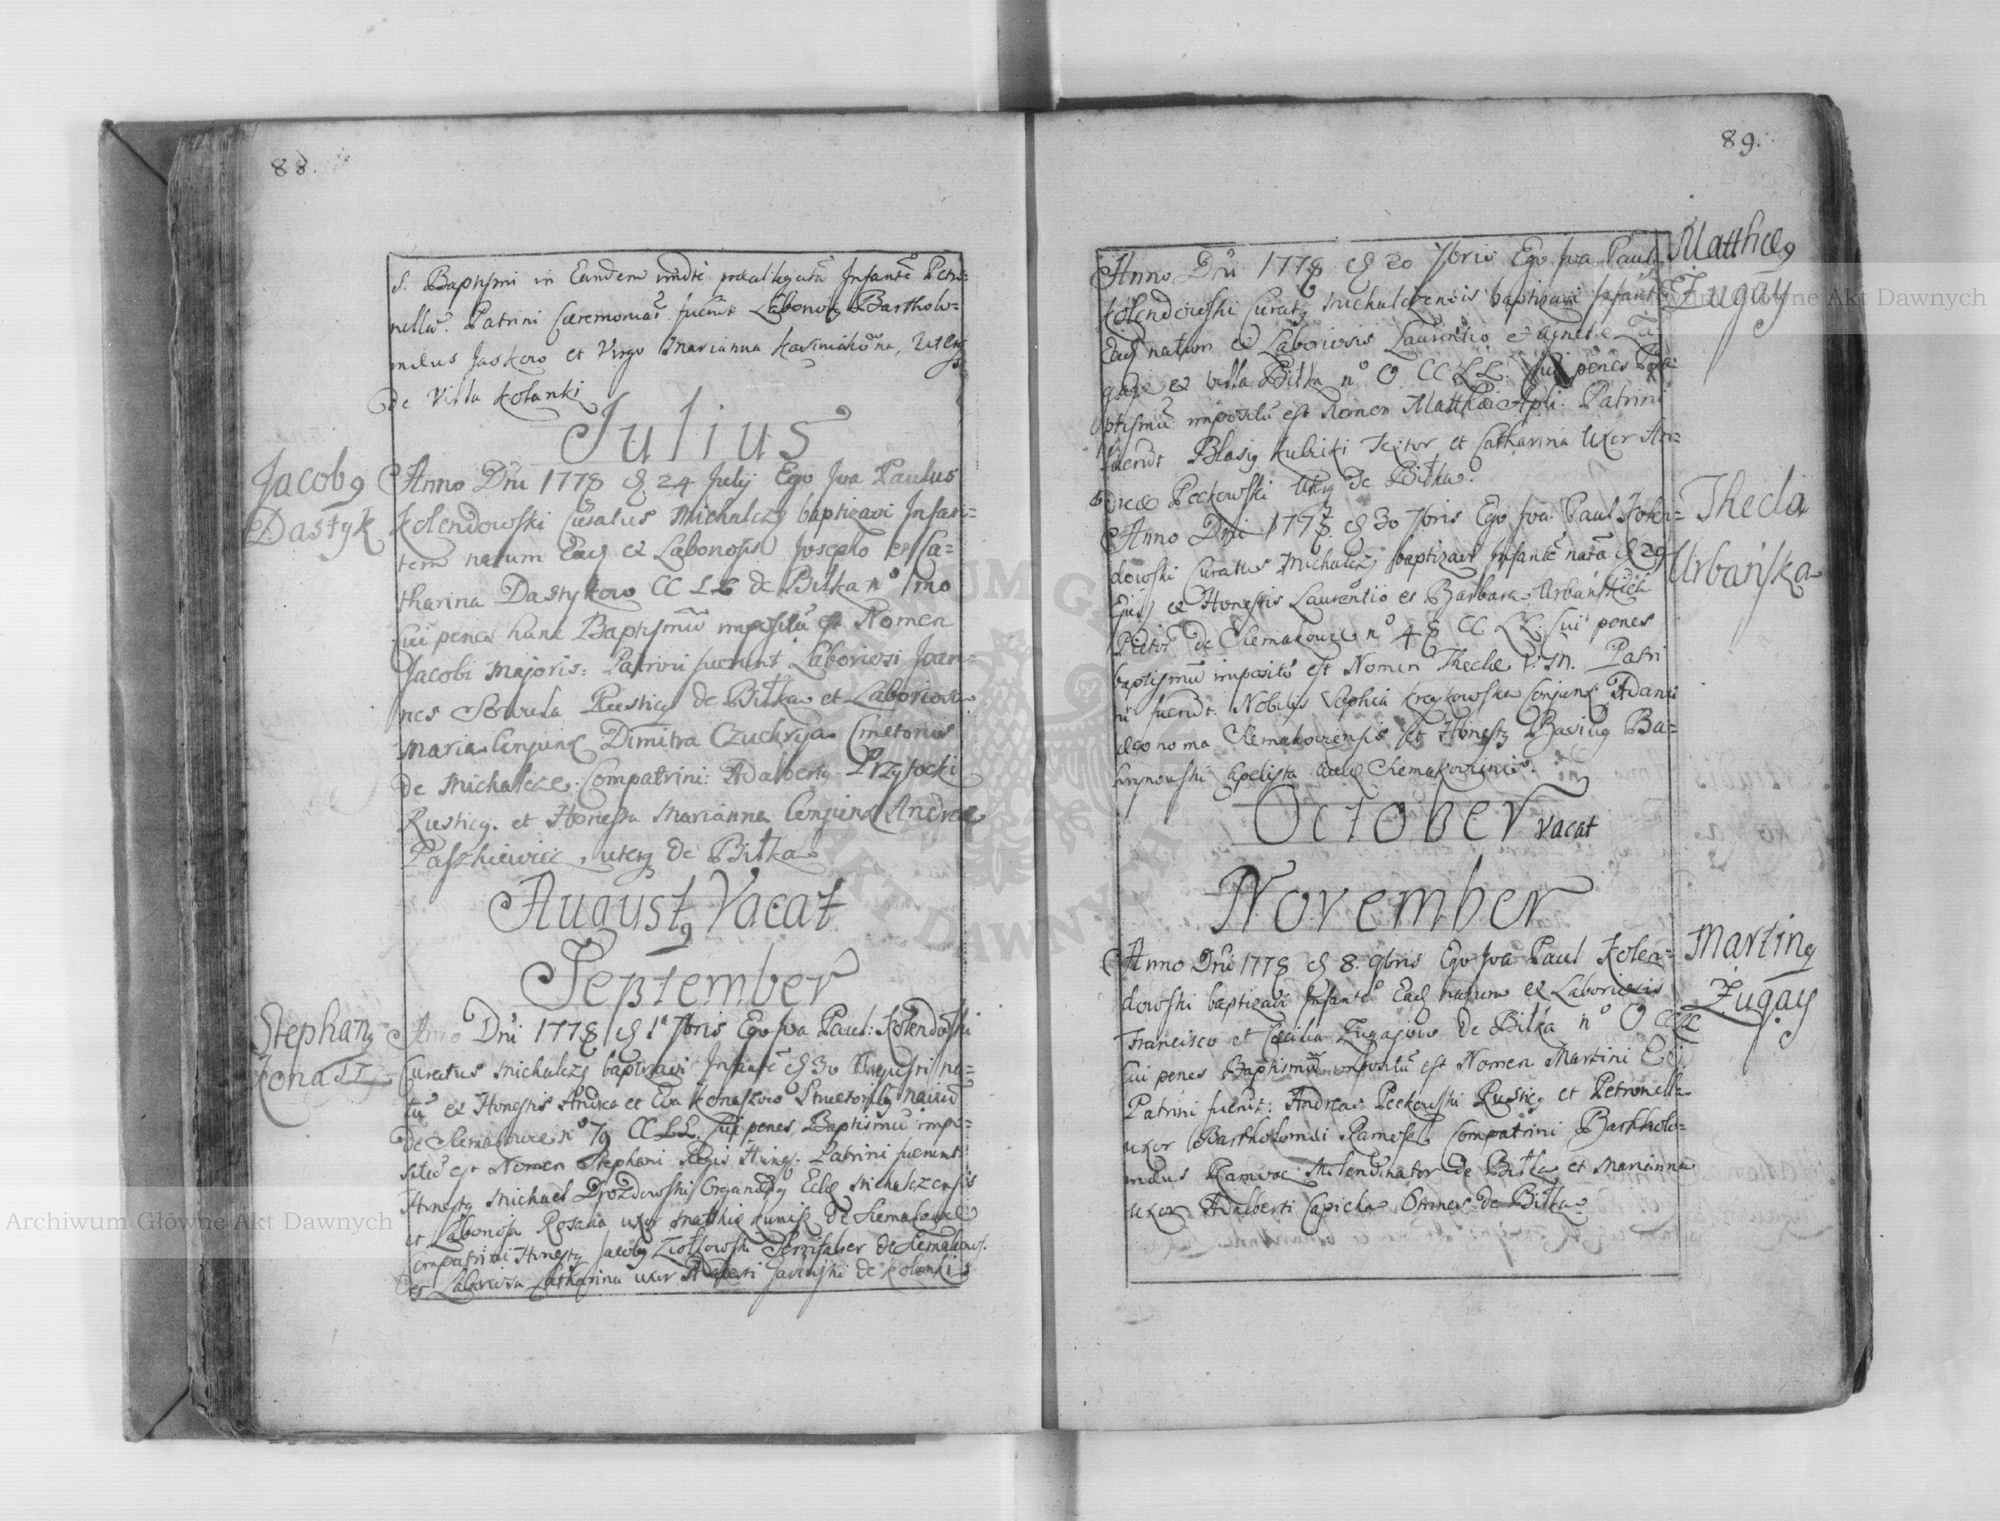 88.
S. Baptismi in Eandem modte praeallegatã Infantẽ Petro-
nellã. Patrini Caeremoniaȓ. fuerũt Laboriosg Bartholo-
maeus Jaskow et Virgo Marianna
de Villa Kolanki
Julius
Jacobg
Dastyk
Anno Dni 1778 d 24 Julij Ego Jva Paulus
Kolendowski Curatus Michalczs baptizavi Infan-
tem natum Ead ex Laboriosis Josepho et Ca-
tharina Dastykow CC LL de Biłka no 1mo
Cui penes hunc Baptismũ impositũ est Nomen
Jacobi Majoris: Patrini fuerunt Laboriosi Joan-
nes Sowula Rusticg de Biłka et Laboriosa
Maria Conjunx Dimitra Czuchryja Cmetonis
de Michalcze. Compatrini: Adalbertg Przysocki
Rusticg. et Honesta Marianna Conjunx Andreae
Paszkiewicz, uterg de Biłka
Augustg Vacat
September
Stephang
Konasz
Anno Dni 1778 d 1a 7bris Ego Jva Paul: Kolendowski
Curatus Michalczs baptizavi Infantẽ d 30 Augusti na-
tũ ex Honestis Andrea et Eva Konaszow
de Siemakowce no 79 CC LL. Cui penes Baptismũ impo-
sitũ est Nomen Stephani Regis Hung. Patrini fuerunt
Honestg Michael Drozdowski Eclae Michalczensis
et Laboriosa Rosalia uxor Mathiae Kunik de Siemakowce
Compatrini Honestg Jacobg Ziołkowski de Siemakow.
et Laboriosa Catharina uxor Adalberti de Kolanki
89.
Mattheg
Zugay
Anno Dni 1778 d 20 7bris Ego Jva Paul:
Kolendowski Curatg Michalczensis baptizavi Infantẽ
Ead natum ex Laboriosis Laurentio et Agnete Zu-
gaje ex villa Biłka no 0 CC LL. Cui penes Ba-
ptismũ impositũ est Nomen Matthae Apli. Patrini
fuerũt Blasig Kulicki Textor et Catharina Uxor An-
dreae Peckowski uterg de Biłka.
Thecla
Urbańska
Anno Dni 1778 d 30 7bris Ego Jva: Paul Kolen-
dowski Curatus Michalczs baptizavi Infantẽ natã d 29
Ejusd ex Honestis Laurentio et Barbara Urbańskich
de Siemakowce no 48 CC LL. Cui penes
baptismũ impositũ est Nomen Theclae V: M. Patri
ni fuerũt Nobilis Sophia Krajkowska Conjunx Adami
Oeconoma Siemakowcensis et Honestg Basilig Ba-
Eclae Siemakowcensis.
October vacat
November
Marting
Zugay
Anno Dni 1778 d 8. 9bris Ego Jva Paul Kolen-
dowski baptizavi Infantẽ Ead natum ex Laboriosis
Francisco et Caecilia Zugajow de Biłka no 0 CC LL
Cui penes Baptismũ impositũ est Nomen Martini E:
Patrini fuerũt: Andreas Peckowski Rusticg et Petronella
uxor Bartholomaei Ramosz Compatrini Bartholo-
maeus Ramosz Molendinator de Biłka et Marianna
uxor Adalberti Capicha Omnes de Biłka
Archiwum Główne Akt Dawnych
Archiwum Główne Akt Dawnych
ARCHIWUM GŁÓWNE AKT DAWNYCH